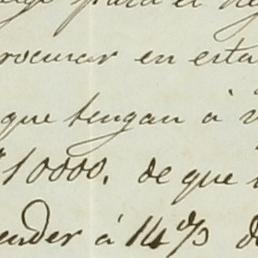 para el
procurar en esta
que tengan à
10000. de que
ender á 14 %